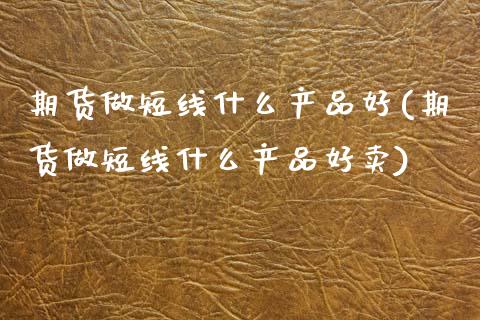 期货做短线什么产品好(期
货做短线什么产品好卖)